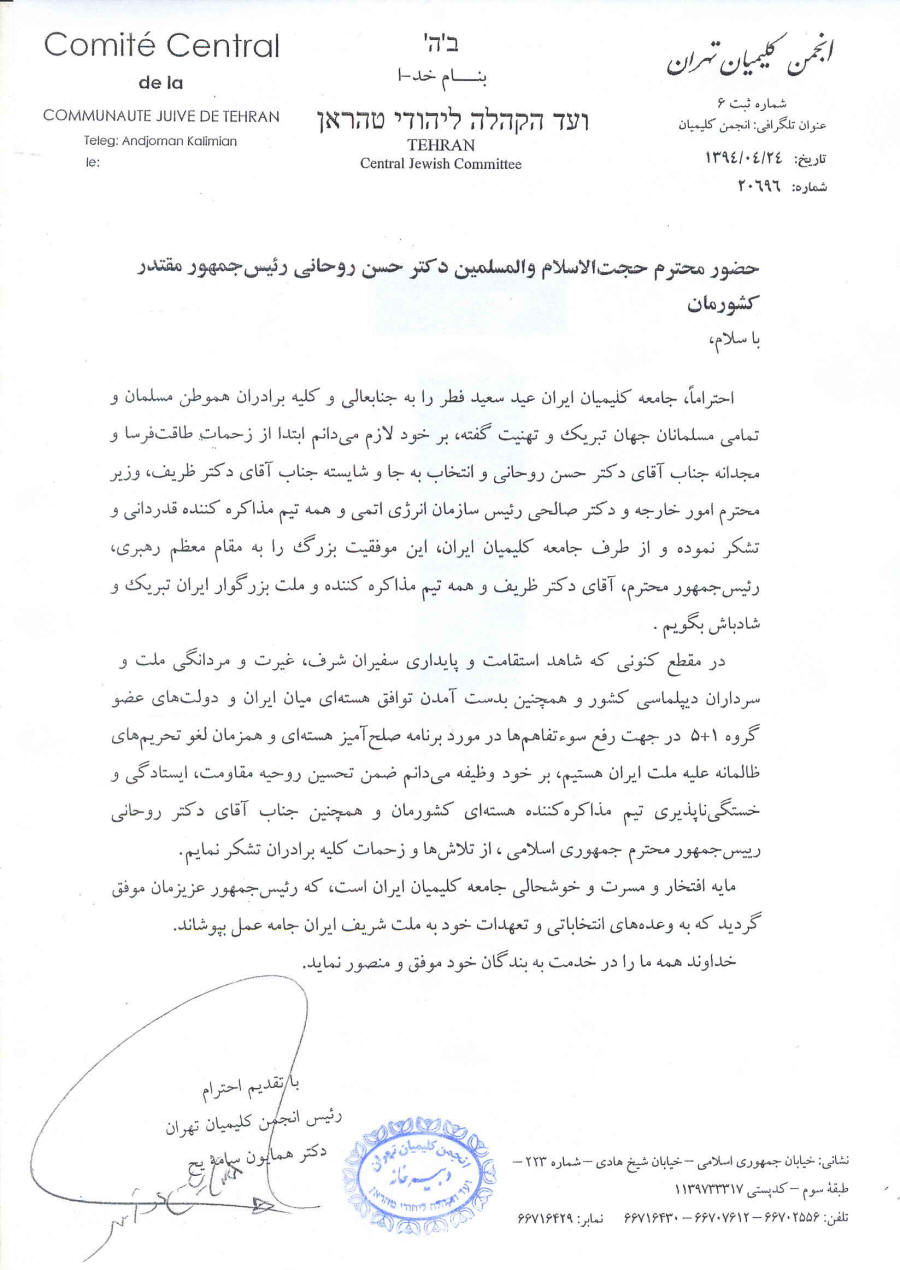 Comité Central
de la
COMMUNAUTE JUIVE DE TEHRAN
Teleg: Andjoman Kalimian
le:
ב'ה'
بنــــام خدا-
ועד הקהלה ליהודי טהראן
TEHRAN
Central Jewish Committee
انجمن کلیمیان تهران
شماره ثبت ۶
عنوان تلگرافی: انجمن کلیمیان
تاریخ: ۱۳۹٤/۰٤/۲٤
شماره: ۲۰٦۹٦
حضور محترم حجت‌الاسلام والمسلمین دکتر حسن روحانی رئیس‌جمهور مقتدر
کشورمان
با سلام،
احتراماً، جامعه کلیمیان ایران عید سعید فطر را به جنابعالی و کلیه برادران هموطن مسلمان و
تمامی مسلمانان جهان تبریک و تهنیت گفته، بر خود لازم می‌دانم ابتدا از زحمات طاقت‌فرسا و
مجدانه جناب آقای دکتر حسن روحانی و انتخاب به جا و شایسته جناب آقای دکتر ظریف، وزیر
محترم امور خارجه و دکتر صالحی رئیس سازمان انرژی اتمی و همه تیم مذاکره کننده قدردانی و
تشکر نموده و از طرف جامعه کلیمیان ایران، این موفقیت بزرگ را به مقام معظم رهبری،
رئیس‌جمهور محترم، آقای دکتر ظریف و همه تیم مذاکره کننده و ملت بزرگوار ایران تبریک و
شادباش بگویم .
در مقطع کنونی که شاهد استقامت و پایداری سفیران شرف، غیرت و مردانگی ملت و
سرداران دیپلماسی کشور و همچنین بدست آمدن توافق هسته‌ای میان ایران و دولت‌های عضو
گروه ۱+۵ در جهت رفع سوءتفاهم‌ها در مورد برنامه صلح‌آمیز هسته‌ای و همزمان لغو تحریم‌های
ظالمانه علیه ملت ایران هستیم، بر خود وظیفه می‌دانم ضمن تحسین روحیه مقاومت، ایستادگی و
خستگی‌ناپذیری تیم مذاکره‌کننده هسته‌ای کشورمان و همچنین جناب آقای دکتر روحانی
رییس‌جمهور محترم جمهوری اسلامی ، از تلاش‌ها و زحمات کلیه برادران تشکر نمایم.
مایه افتخار و مسرت و خوشحالی جامعه کلیمیان ایران است، که رئیس‌جمهور عزیزمان موفق
گردید که به وعده‌های انتخاباتی و تعهدات خود به ملت شریف ایران جامه عمل بپوشاند.
خداوند همه ما را در خدمت به بندگان خود موفق و منصور نماید.
با تقدیم احترام
رئیس انجمن کلیمیان تهران
دکتر همایون سامه یح
انجمن کلیمیان تهران
دبیرخانه
ועד הקהלה ליהודי טהראן
نشانی: خیابان جمهوری اسلامی – خیابان شیخ هادی – شماره ۲۲۳ –
طبقهٔ سوم – کدپستی ۱۱۳۹۷۳۳۳۱۷
تلفن: ۶۶۷۰۲۵۵۶ – ۶۶۷۰۷۶۱۲ – ۶۶۷۱۶۴۳۰ نمابر: ۶۶۷۱۶۴۲۹